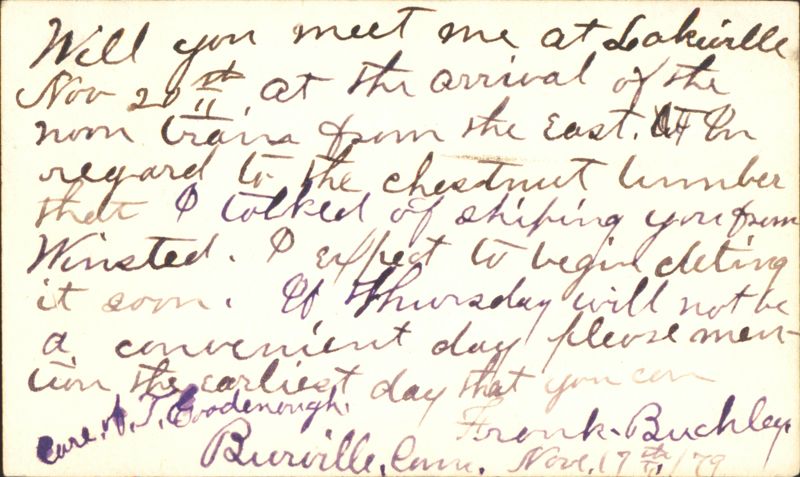 Will you meet me at Lakeville
Nov 20th at the arrival of the
noon trains from the East. In
regard to the chestnut lumber
that I talked of shiping you from
Winsted. I expect to begin cleting
it soon. If Thursday will not be
a convenient day please men-
tion the earliest day that you can
Care. of. T. Goodenough.
Frank. Buckley.
Burville, Conn. Nove. 17th /79